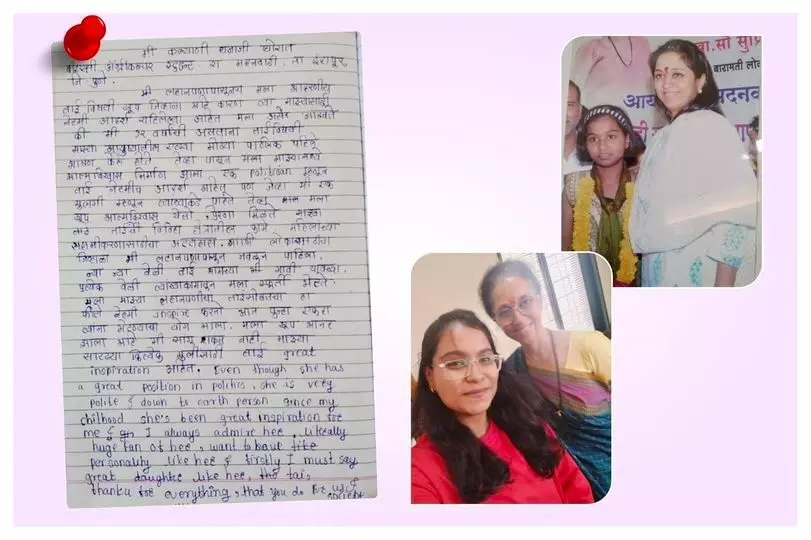 मी कल्याणी धनाजी थोरात
बारामती अॅग्रीकल्चर स्टुडन्ट. रा मदनवाडी, ता इंदापूर,
जि पुणे.
मी लहानपणापासूनच मला आदरणीय
ताई विषयी खूप जिव्हाळा आहे कारण त्या माझ्यासाठी
नेहमी आदर्श राहिलेल्या आहेत मला अजून आठवते
की मी १२ वर्षाची असताना ताईविषयी
माझ्या आयुष्यातील पहिले
भाषण केले होते तेव्हा पासून मला माझ्यामध्ये
आत्मविश्वास निर्माण झाला एक politician म्हणून
ताई नेहमीच आदर्श आहेतच पण जेव्हा मी एक
मुलगी म्हणून त्यांच्याकडे पाहते तेव्हा मला
खूप आत्मविश्वास येतो, प्रेरणा मिळते
ताईंची विविध क्षेत्रातील कामे महिलांच्या
सक्षमीकरणासाठीचा आणि लोकांसाठीचा
जिव्हाळा मी लहानपणापासून जवळून पाहिला.
ज्या ज्या वेळी ताई आमच्या गावी यायच्या.
प्रत्येक वेळी त्यांच्याकडून मला स्फूर्ती मिळते.
मला माझ्या लहानपणीचा ताईंसोबतचा हा
फोटो नेहमी inspire करतो आज पुन्हा एकदा
त्यांना भेटण्याचा योग आला. मला खूप आनंद
झाला आहे मी सांगू शकत नाही माझ्या
सारख्या कित्येक मुलींसाठी ताई great
inspiration आहेत. Even though she has
a great position in politics, she is very
polite & down to earth person since my
chilhood she's been great inspiration for
me & I always admire her, literally
huge fan of her, want to have like
personality like her & firstly I must say
great daughter like her, tai,
thanku for everything, that you do for us &
society
सुप्रि
बारामती लो